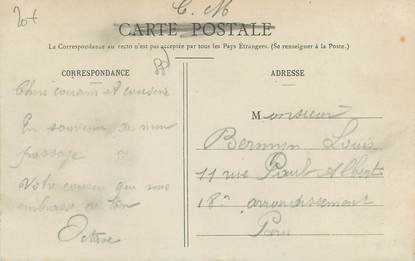 20f
C. M
CARTE POSTALE
La Correspondance au recto n'est pas acceptée par tous les Pays Étrangers. (Se renseigner à la Poste.)
CORRESPONDANCE
ADRESSE
Chers cousin et cousine
En souvenir de mon
passage
Votre cousin qui vous
embrasse
Octave
Monsieur
Bermyn Louis
11 rue Paul Albert
18e arrondissement
Paris